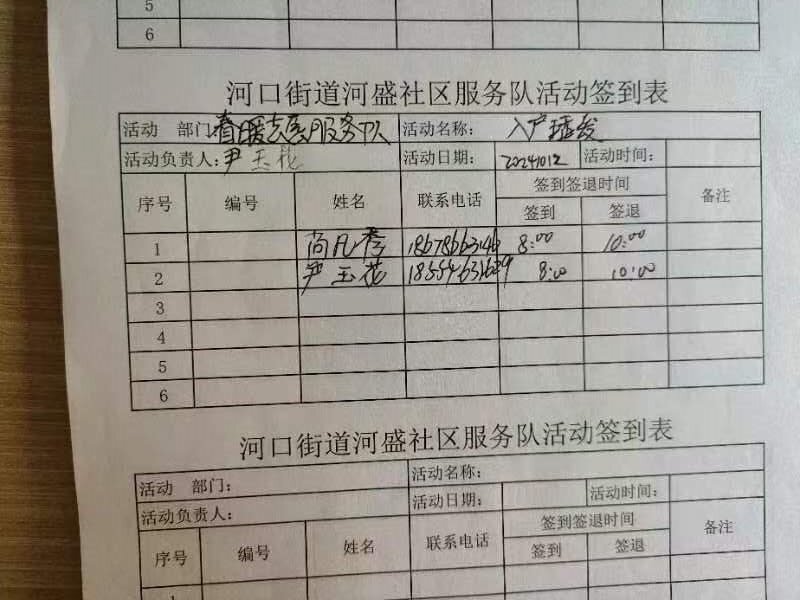 5
6
河口街道河盛社区服务队活动签到表
活动 部门 春暖志愿服务队 活动名称：入户
活动负责人：尹玉花 活动日期： 20241012 活动时间：
序号 编号 姓名 联系电话 签到签退时间 备注
签到 签退
1 尚凡 8:00 10:00
2 尹玉花 8:00 10:00
3
4
5
6
河口街道河盛社区服务队活动签到表
活动 部门： 活动名称：
活动负责人： 活动日期： 活动时间：
序号 编号 姓名 联系电话 签到签退时间 备注
签到 签退